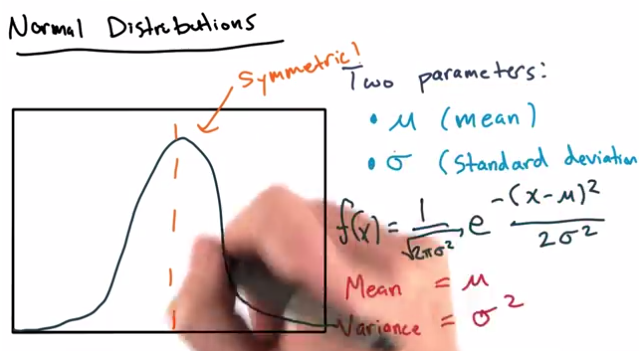 Normal Distributions
Symmetric!
Two parameters:
• μ (mean)
• σ (Standard deviation
f(x) = 1/√2πσ² e -(x-μ)²/2σ²
Mean = μ
Variance = σ²